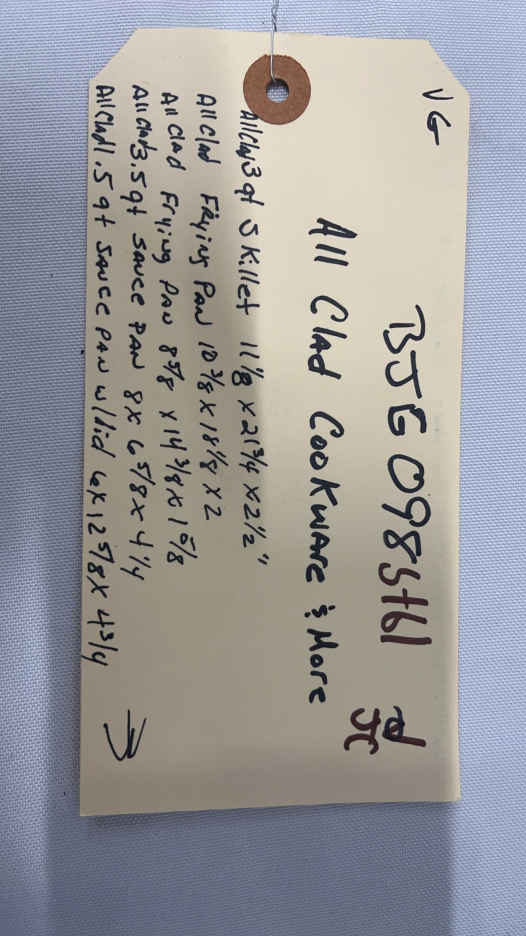 VG
BJE098SH61
JC
All Clad Cookware & More
All Clad 3qt Skillet 11 1/8 x 21 3/4 x 2 1/2"
All Clad Frying Pan 10 3/8 x 18 1/8 x 2
All Clad Frying Pan 8 5/8 x 14 3/8 x 1 5/8
All Clad 3.5qt Sauce Pan 8 x 6 5/8 x 4 1/4
All Clad 1.5qt Sauce Pan w/lid 6 x 12 5/8 x 4 3/4
→